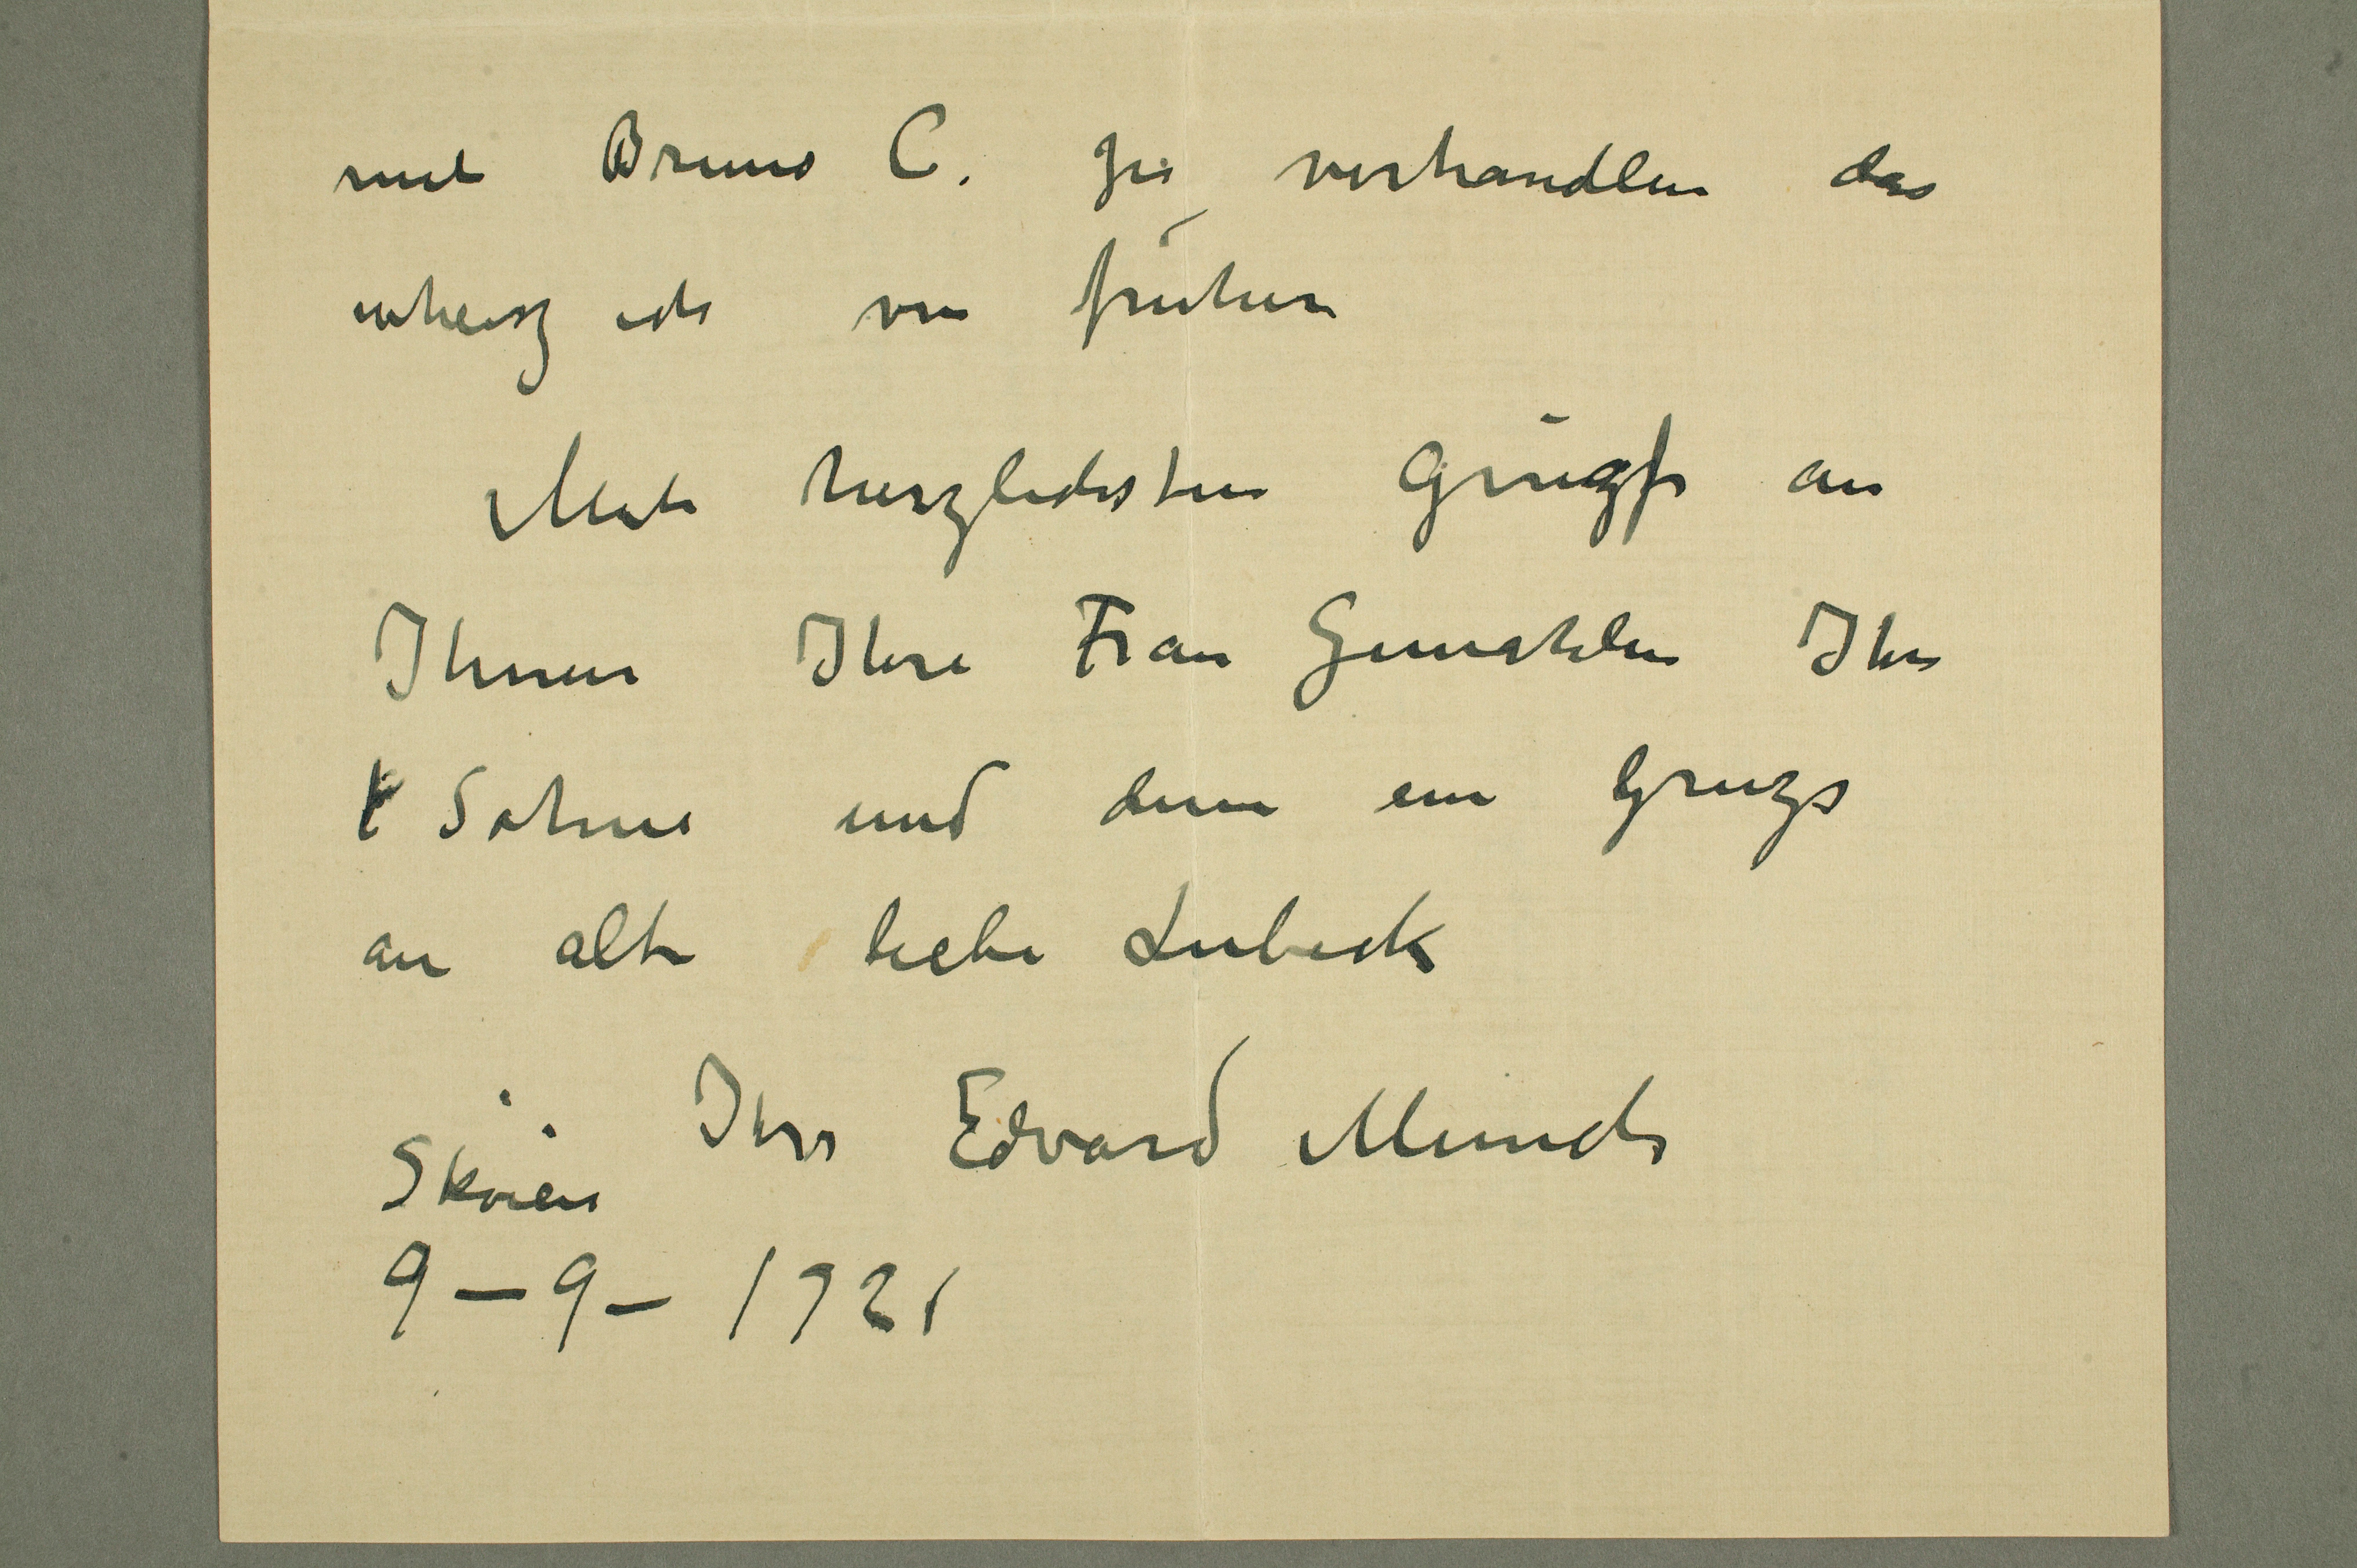 mit Bruno C. zu verhandlen das
wheisz ich von früher
Mit herzlichsten Grüszse an
Ihnen Ihre Frau Gemahlin Ihr
Sohne und dem ein Gruzs
an alte liebe Lubeck
Ihr Edvard Munch
Skøien
9–9– 1921